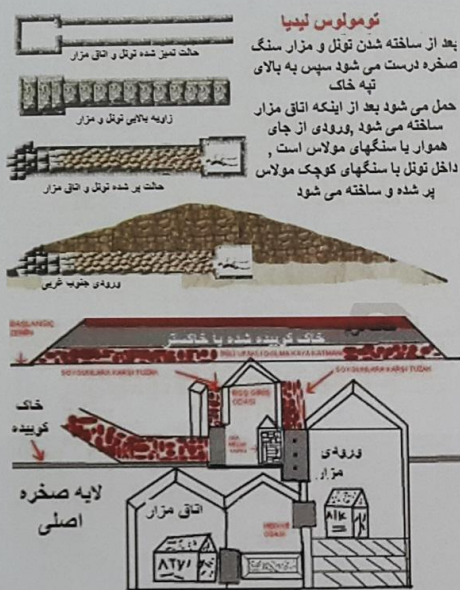 تومولوس لیدیا
بعد از ساخته شدن تونل و مزار سنگ
صخره درست می شود سپس به بالای
تپه خاک
حمل می شود بعد از اینکه اتاق مزار
ساخته می شود ,ورودی از جای
هموار با سنگهای مولاس است ,
داخل تونل با سنگهای کوچک مولاس
پر شده و ساخته می شود
حالت تمیز شده تونل و اتاق مزار
زاویه بالایی تونل و مزار
حالت پر شده تونل و اتاق مزار
ورودی جنوب غربی
BAŞLANGIÇ
ZEMİN
خاک کوبیده شده با خاکستر
SOYGUNLARA KARŞI TUZAK
SOYGUNLARA KARŞI TUZAK
BOŞ GİRİŞ
ODASI
خاک
کوبیده
ورودی
مزار
لایه صخره
اصلی
اتاق مزار
ODASI